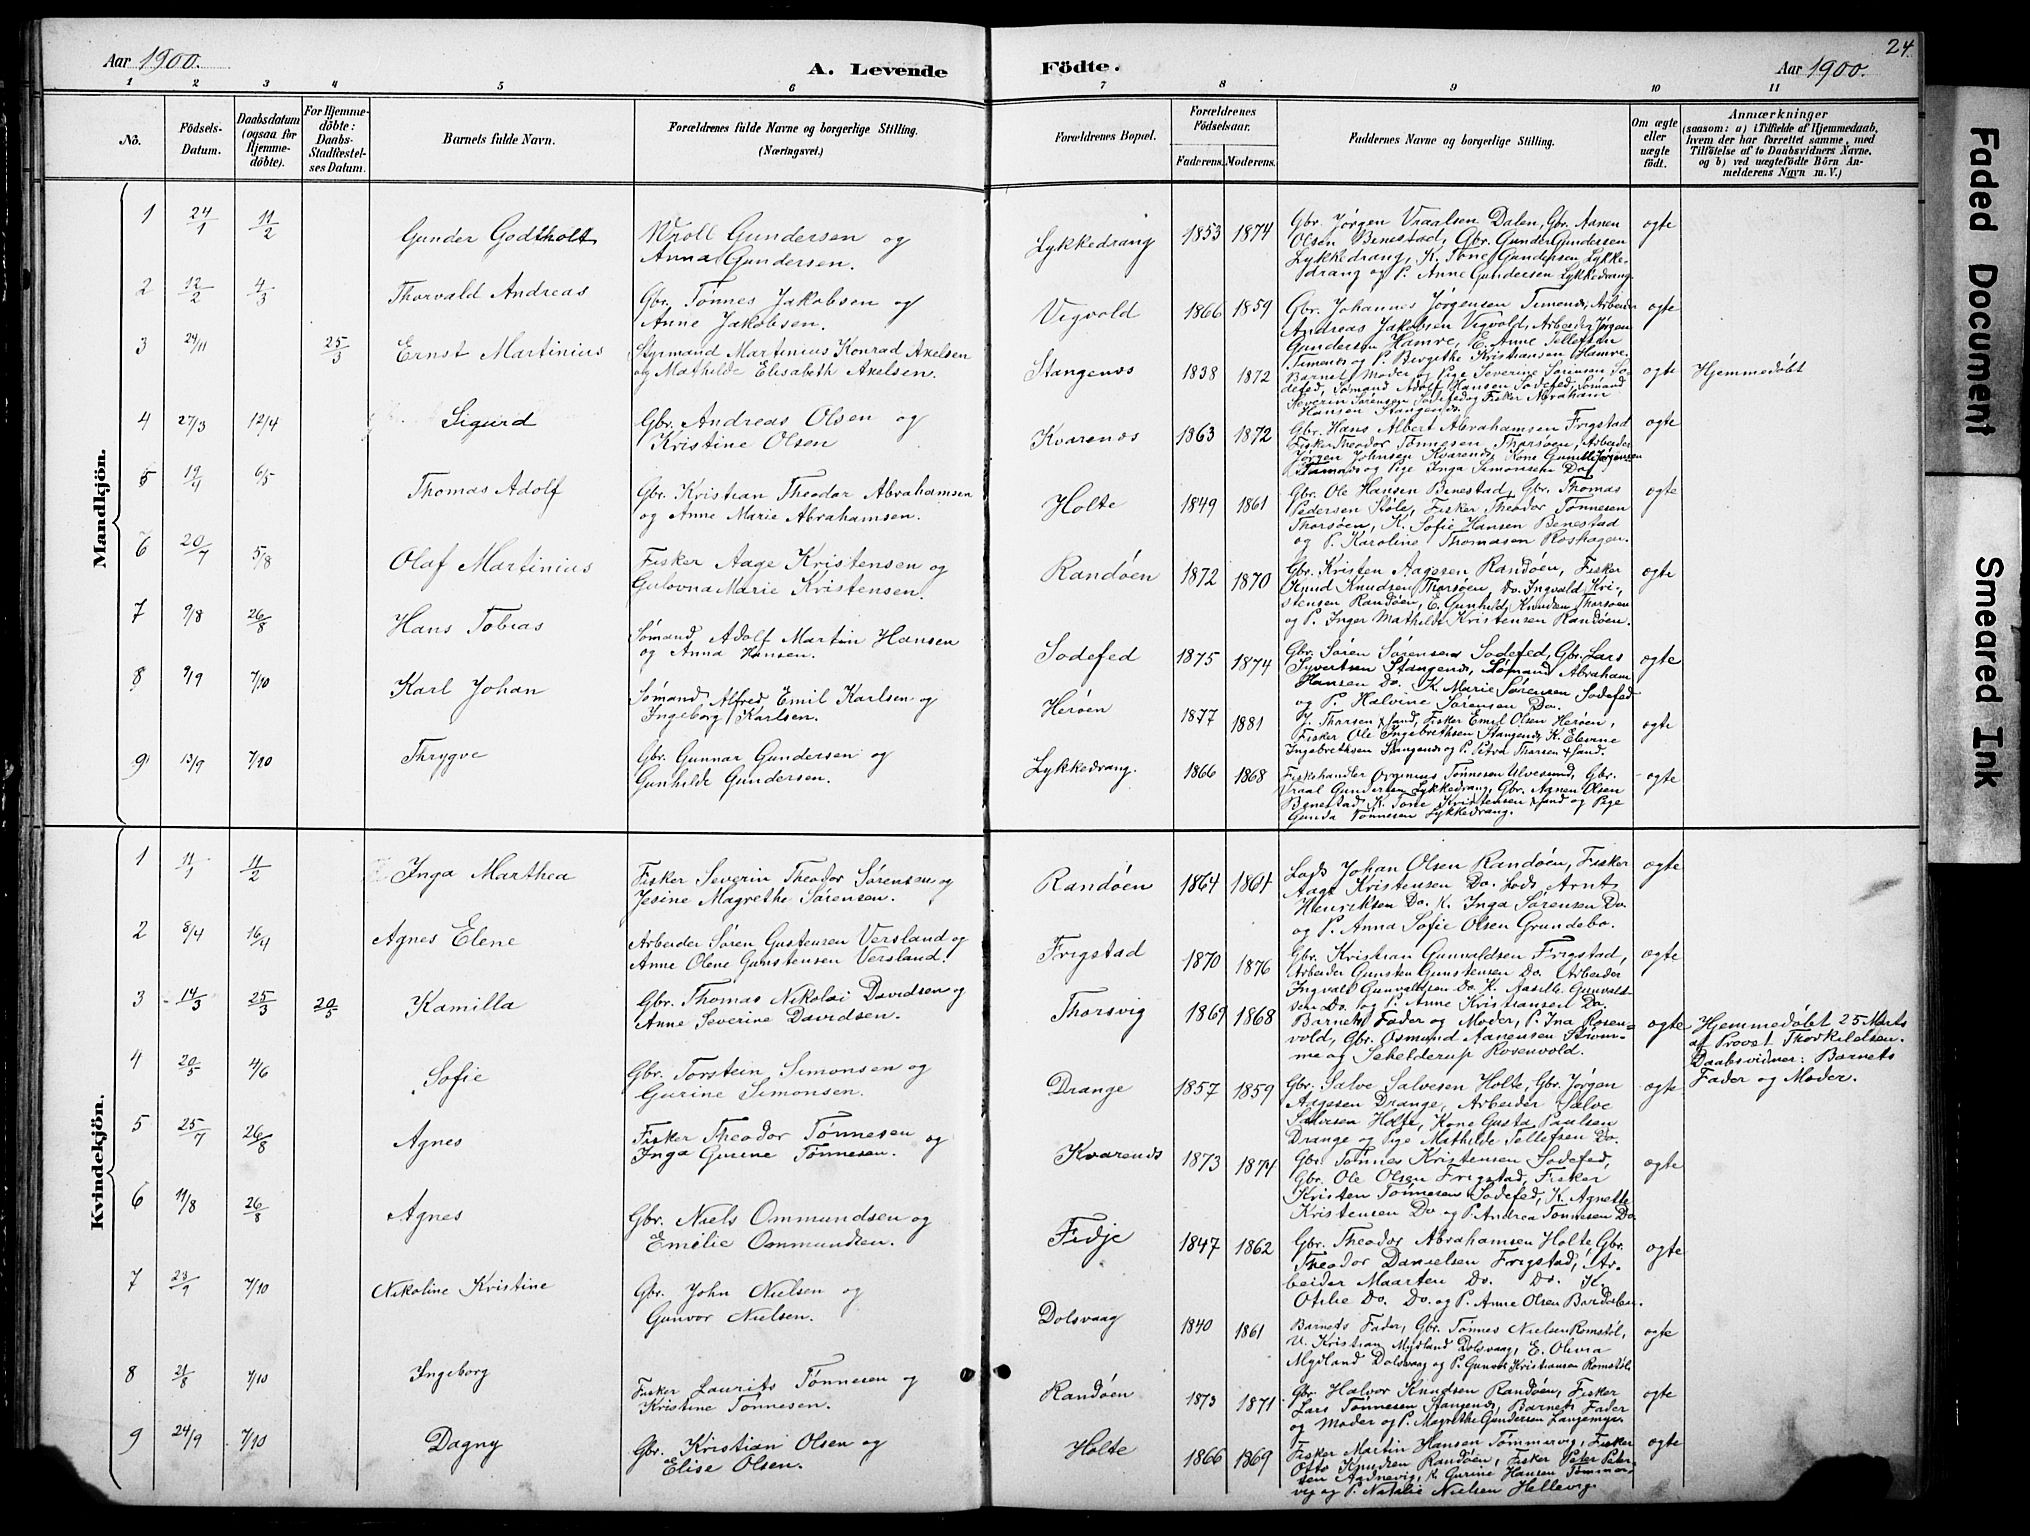 Aar 1900.
A. Levende Födte.
Aar 1900.
24.
1 2 3 4 5 6 7 8 9 10 11
No.
Födsels-Datum.
Daabsdatum (ogsaa for Hjemme-döbte).
For Hjemme-döbte: Daabs-Stadfæstel-ses Datum.
Barnets fulde Navn.
Forældrenes fulde Navne og borgerlige Stilling. (Næringsvei.)
Forældrenes Bopæl.
Forældrenes Födselsaar.
Faderens. Moderens.
Faddernes Navne og borgerlige Stilling.
Om ægte eller uægte födt.
Anmærkninger (saasom: a) i Tilfælde af Hjemmedaab, hvem der har forrettet samme, med Tilföielse af to Daabsvidners Navne, og b) ved uægtefödte Börn An-melderens Navn m. V.)
Mandkjön.
1 24/1 11/2 Gunder Godtholt
Wroll Gundersen og
Anna Gundersen.
Lykkedrang 1853 1874
Gbr. Jørgen Vraalsen Dalen, Gbr. Aanen
Olsen Benestad, Gbr. Gunder Gundersen
Lykkedrang, K. Tone Gundersen Lykke-
drang og P. Anne Gundersen Lykkedrang.
ægte
2 12/2 4/3 Thorvald Andreas
Gbr. Tønnes Jakobsen og
Anne Jakobsen.
Vigvold 1866 1859
Gbr. Johannes Jørgensen Timenes, Arbeider
Andreas Jakobsen Vigvold, Arbeider Jørgen
Gundersen Hamre, E. Anne Tellefsen
Timenes og P. Bergithe Kristiansen Hamre.
ægte
3 24/11 25/3 Ernst Martinius
Styrmand Martinius Konrad Axelsen
og Mathilde Elisabeth Axelsen.
Stangenæs 1838 1872
Barnets Moder og Pige Severine Sørensen So-
defed, Sømand Adolf Hansen Sodefed, Sømand
Severin Sørensen Sodefed og Fisker Abraham
Hansen Stangenæs.
ægte Hjemmedøbt
4 27/3 12/4 Sigurd
Gbr. Andreas Olsen og
Kristine Olsen
Kvarenæs 1863 1872
Gbr. Hans Albert Abrahamsen Frigstad
Fisker Theodor Tønnesen Tharsøen, Arbeider
Jørgen Johnsen Kvarenæs, Kone Gunild Jørgensen
og Pige Inga Simonsen Do
ægte
5 19/4 6/5 Thomas Adolf
Gbr. Kristian Theodor Abrahamsen
og Anne Marie Abrahamsen.
Holte 1849 1861
Gbr. Ole Hansen Benestad, Gbr. Thomas
Pedersen Støle, Fisker Theodor Tønnesen
Thorsøen, K. Sofie Hansen Benestad
og P. Karoline Thomasen Roshagen.
ægte
6 20/7 5/8 Olaf Martinius
Fisker Aage Kristensen og
Gulovna Marie Kristensen.
Randøen 1872 1870
Gbr. Kristen Aagesen Randøen, Fisker
Knud Knudsen Tharsøen, Do. Ingvald Kri-
stensen Randøen, E. Gunhild Knudsen Tharsøen
og P. Inger Mathilde Kristensen Randøen.
ægte
7 9/8 26/8 Hans Tobias
Sømand Adolf Martin Hansen
og Anna Hansen.
Sodefed 1875 1874
Gbr. Søren Sørensen Sodefed, Gbr. Lars
Syvertsen Stangenæs, Sømand Abraham
Hansen Do. K. Marie Sørensen Sodefed
og P. Halvine Sørensen Do.
ægte
8 9/9 7/10 Karl Johan
Sømand Alfred Emil Karlsen og
Ingeborg Karlsen.
Herøen 1877 1881
J. Tharsen Xsand, Fisker Emil Olsen Herøen,
Fisker Ole Ingebrethsen Stangenæs, K. Elevine
Ingebrethsen Stangenæs og P. Petra Tharsen Xsand.
ægte
9 13/9 7/10 Thrygve
Gbr. Gunnar Gundersen og
Gunhilde Gundersen.
Lykkedrang. 1866 1868
Fiskehandler Tønnesen Ulvesund, Gbr.
Vraal Gundersen Lykkedrang, Gbr. Aanen Olsen
Benestad, K. Tone Kristensen Xsand og Pige
Gunda Tønnesen Lykkedrang.
ægte
Kvindekjön.
1 11/1 11/2 Inga Marthea
Fisker Severin Theodor Sørensen og
Jesine Magrethe Sørensen.
Randøen 1864 1864
Lods Johan Olsen Randøen, Fisker
Aage Kristensen Do. Lods Arnt
Henriksen Do. K. Inga Sørensen Do.
og P. Anna Sofie Olsen Grundebo.
ægte
2 8/4 16/4 Agnes Elene
Arbeider Søren Gustensen Versland og
Anne Olene Gunstensen Versland.
Frigstad 1870 1876
Gbr. Kristian Gunvaldsen Frigstad,
Arbeider Gunsten Gunstensen Do. Arbeider
Ingvald Gunvaldsen Do. K. Aasille Gunvald-
sen Do. og P. Anne Kristiansen Do.
ægte
3 14/3 25/3 20/5 Kamilla
Gbr. Thomas Nikolai Davidsen og
Anne Severine Davidsen.
Thorsvig 1869 1868
Barnets Fader og Moder, P. Ina Rosen-
vold, Gbr. Osmund Aanensen Strøm-
me og Schelderup Rosenvold.
ægte
Hjemmedøbt 25 Marts
af Provst Thorkildsen.
Daabsvidner: Barnets
Fader og Moder.
4 20/5 4/6 Sofie
Gbr. Torstein Simonsen og
Gurine Simonsen.
Drange 1857 1859
Gbr. Salve Salvesen Holte, Gbr. Jørgen
Aagesen Drange, Arbeider Salve
Salvesen Holte, Kone Gusta Paulsen
Drange og Pige Mathilde Tellefsen Do.
ægte
5 25/7 26/8 Agnes
Fisker Theodor Tønnesen og
Inga Gurine Tønnesen.
Kvarenæs 1873 1874
Gbr. Tønnes Kristensen Sodefed,
Gbr. Ole Olsen Frigstad, Fisker
Kristen Tønnesen Sodefed, K. Agnette
Kristensen Do og P. Andrea Tønnesen Do.
ægte
6 11/8 26/8 Agnes
Gbr. Niels Ommundsen og
Emelie Ommundsen.
Fidje 1847 1862
Gbr. Theodor Abrahamsen Holte, Gbr.
Theodor Danielsen Frigstad, Ar-
beider Maarten Do. Do. K.
Otilie Do. Do. og P. Anne Olsen
ægte
7 23/9 7/10 Nikoline Kristine
Gbr. John Nielsen og
Gunvor Nielsen.
Dolsvaag 1840 1861
Barnets Fader, Gbr. Tønnes Nielsen Romstøl,
V. Kristian Mydland Dolsvaag, E. Olivia
Mydland Dolsvaag og P. Gunvor Kristiansen Romstøl.
ægte
8 21/8 7/10 Ingeborg
Fisker Laurits Tønnesen og
Kristine Tønnesen.
Randøen 1873 1871
Gbr. Halvor Knudsen Randøen, Fisker
Lars Tønnesen Stangenæs, Barnets Fader
og Moder og P. Magrethe Gundersen Langemyr.
ægte
9 24/9 7/10 Dagny
Gbr. Kristian Olsen og
Elise Olsen.
Holte 1866 1869
Fisker Martin Hansen Tømmervig, Fisker
Otto Knudsen Randøen, Fisker Peter Peter-
sen Aadnevig, K. Gurine Hansen Tømmer-
vig og P. Natalie Nielsen Hellevig.
ægte
Faded Document
Smeared Ink